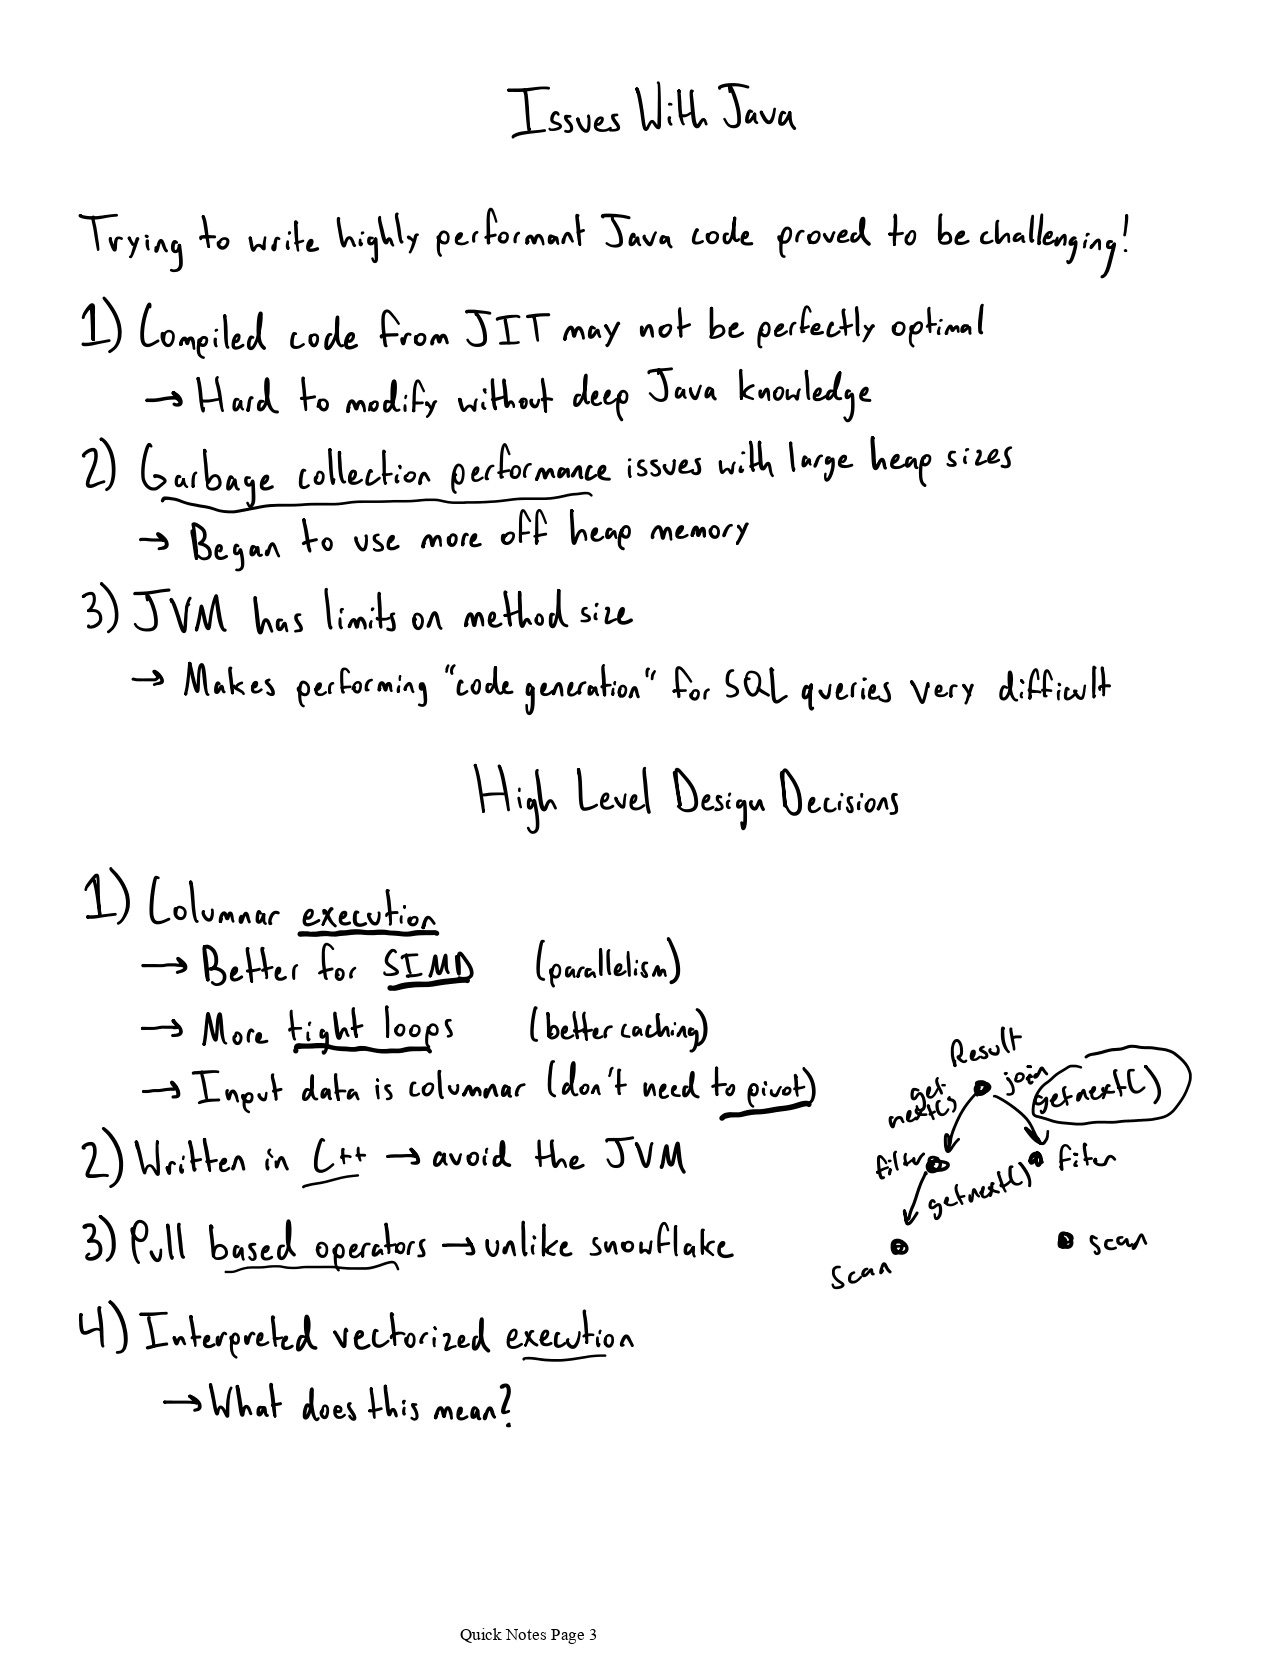 Issues With Java
Trying to write highly performant Java code proved to be challenging!
1) Compiled code from JIT may not be perfectly optimal
→ Hard to modify without deep Java knowledge
2) Garbage collection performance issues with large heap sizes
→ Began to use more off heap memory
3) JVM has limits on method size
→ Makes performing "code generation" for SQL queries very difficult
High Level Design Decisions
1) Columnar execution
→ Better for SIMD (parallelism)
→ More tight loops (better caching)
→ Input data is columnar (don't need to pivot)
2) Written in C++ → avoid the JVM
3) Pull based operators → unlike snowflake
4) Interpreted vectorized execution
→ What does this mean?
Result
join
get
next()
getnext()
filter
filter
getnext()
scan
scan
Quick Notes Page 3